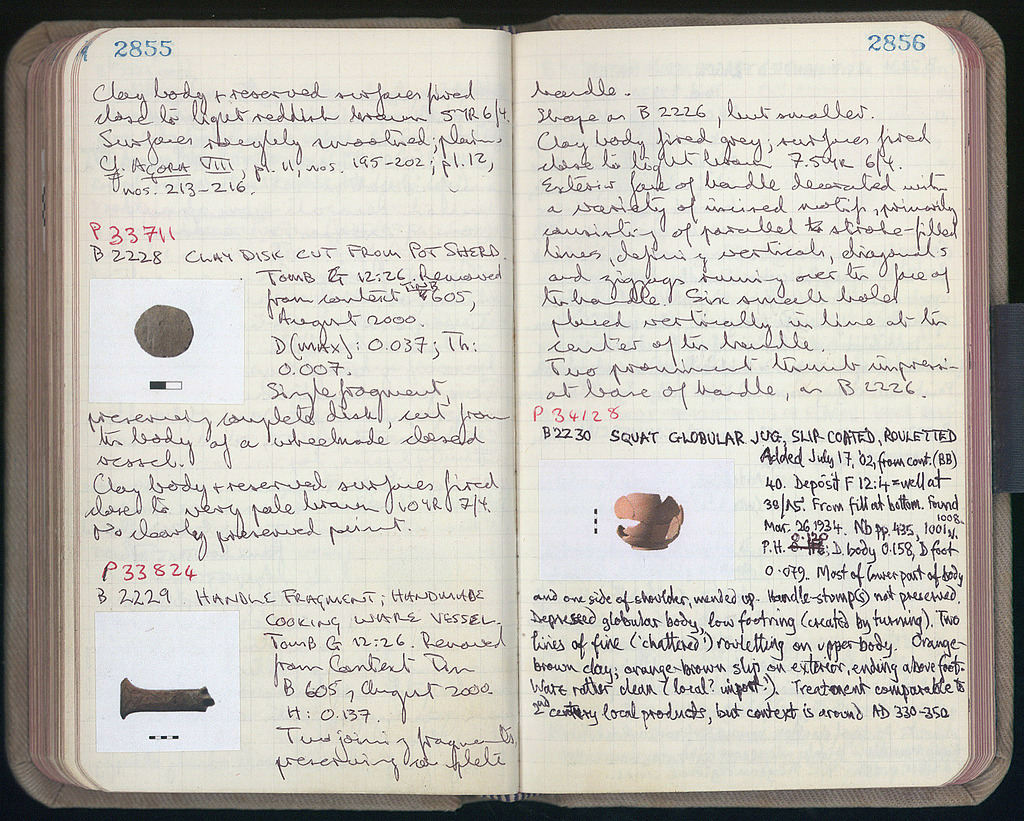 2855
Clay body + reserved surfaces fired
close to light reddish brown 5YR 6/4.
Surfaces roughly smoothed; plain.
Cf. AGORA VIII, pl. 11, nos. 195-202; pl. 12,
nos. 213-216.
P 33711
B 2228 CLAY DISK CUT FROM POT SHERD.
TOMB G 12:26. Removed
from context Tin B 605,
August 2000.
D(MAX): 0.037; Th:
0.007.
Single fragment,
preserving complete disk, cut from
the body of a wheelmade closed
vessel.
Clay body + reserved surfaces fired
close to very pale brown 10YR 7/4.
No clearly preserved paint.
P 33824
B 2229 HANDLE FRAGMENT; HANDMADE
COOKING WARE VESSEL.
TOMB G 12:26. Removed
from Context Tin
B 605, August 2000
H: 0.137.
Two joining fragments,
preserving complete
2856
handle.
Shape as B 2226, but smaller.
Clay body fired grey; surfaces fired
close to light brown 7.5YR 6/4.
Exterior face of handle decorated with
a variety of incised motifs, primarily
consisting of parallel stroke-filled
lines, defining verticals, diagonals
and zigzags running over the face of
the handle. Six small holes
placed vertically in line at the
center of the handle.
Two prominent thumb impressi-
at base of handle, as B 2226.
P 34128
B2230 SQUAT GLOBULAR JUG, SLIP-COATED, ROULETTED
Added July 17, '02, from cont. (BB)
40. Deposit F 12:4 = well at
38/ΛΣ. From fill at bottom. Found
Mar. 26 1934. Nb pp. 435, 1001, 1008
P.H. 0.120; D. body 0.158, D foot
0.079. Most of lower part of body
and one side of shoulder, mended up. Handle-stump(s) not preserved.
Depressed globular body, low footring (created by turning). Two
lines of fine ('chattered') rouletting on upper body. Orange-
brown clay; orange-brown slip on exterior, ending above foot.
Ware rather clean (local? import?). Treatment comparable to
2nd century local products, but context is around AD 330-350